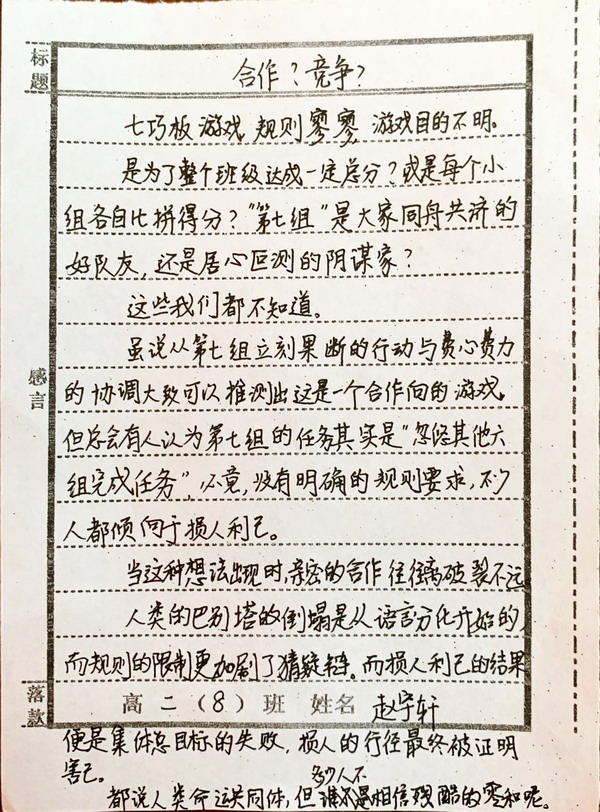 标题
合作？竞争？
七巧板游戏，规则寥寥，游戏目的不明。
是为了整个班级达成一定总分？或是每个小
组各自比拼得分？"第七组"是大家同舟共济的
好队友，还是居心叵测的阴谋家？
这些我们都不知道。
虽说从第七组立刻果断的行动与费心费力
感言
的协调大致可以推测出这是一个合作向的游戏，
但总会有人认为第七组的任务其实是"忽悠其他六
组完成任务"，毕竟，没有明确的规则要求，不少
人都倾向于损人利己。
当这种想法出现时，亲密的合作往往离破裂不远
人类的巴别塔的倒塌是从语言分化开始的，
而规则的限制更加剧了猜疑链。而损人利己的结果
落款
高二（8）班 姓名 赵宇轩
便是集体总目标的失败，损人的行径最终被证明
害己。
多少人不
都说人类命运共同体，但谁不是相信残酷的零和呢。